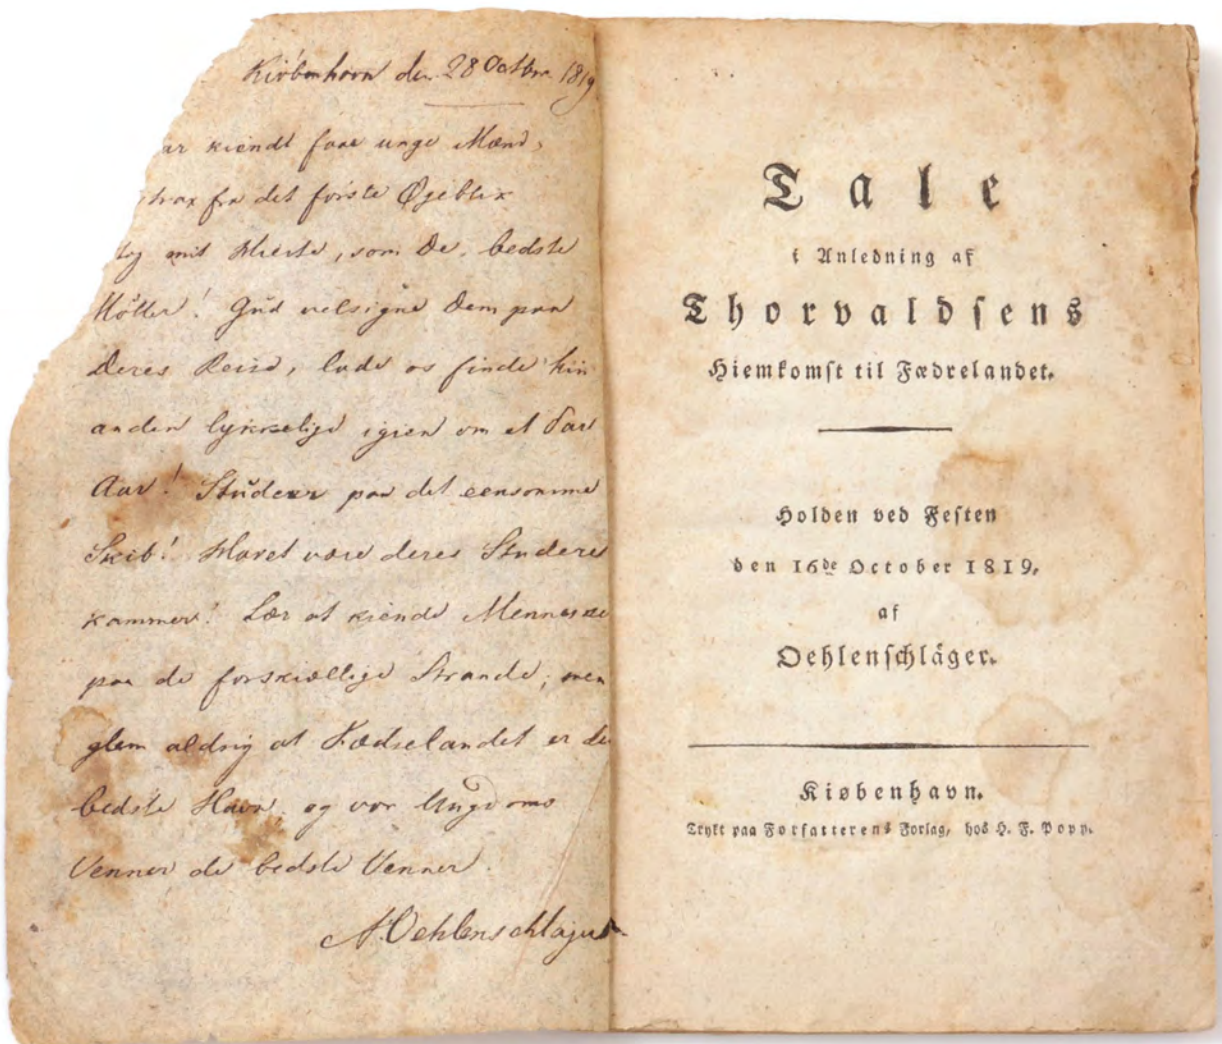 Kiöbenhavn den 28 Octbr. 1819
ar kiendt faae unge Mænd,
strax fra det første Øgeblik
tog mit Hierte, som De, bedste
Møller! Gud velsigne Dem paa
Deres Reise, lade os finde hin
anden lykkelige igien om et Par
Aar! Studeer paa det eensomme
Skib! Havet være deres Studere
kammer! Lær at kiende Menneske
paa de forskiællige Strande, men
glem aldrig at Fædrelandet er de
bedste Havn, og vor Ungdoms
Venner de bedste Venner.
A. Oehlenschläger
Tale
i Anledning af
Thorvaldsens
Hiemkomst til Fædrelandet.
Holden ved Festen
den 16de October 1819.
af
Oehlenschläger.
Kiøbenhavn.
Trykt paa Forfatterens Forlag, hos H. F. Popp.